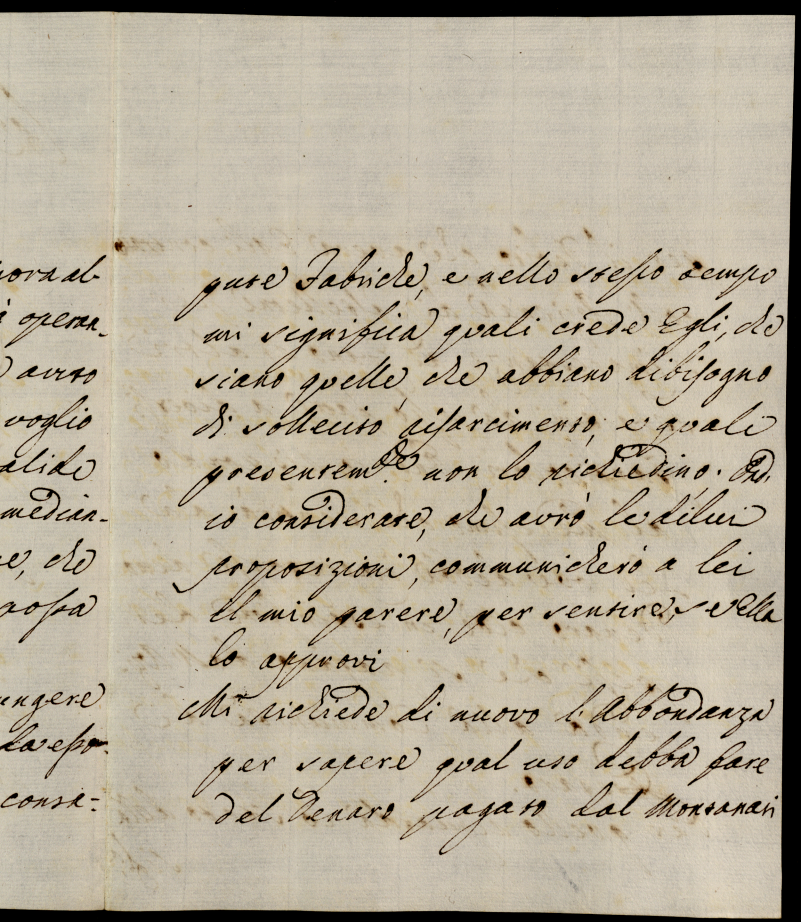 ora al-
operan-
avuto
voglio
alide
median-
e, che
possa
ungere
da esso
consa=
pure Fabriche, e nello stesso tempo
mi significa quali crede Egli, che
siano quelle, che abbiano dibisogno
di sollecito risarcimento, e quali
presentem.te non lo richiedino. Ond.
io considerate, che avrò le dilui
proposizioni, communicherò a lei
il mio parere, per sentire, se Ella
lo approvi
Mi richiede di nuovo l'Abbondanza
per sapere qual uso debba fare
del Denaro pagato dal Montanari